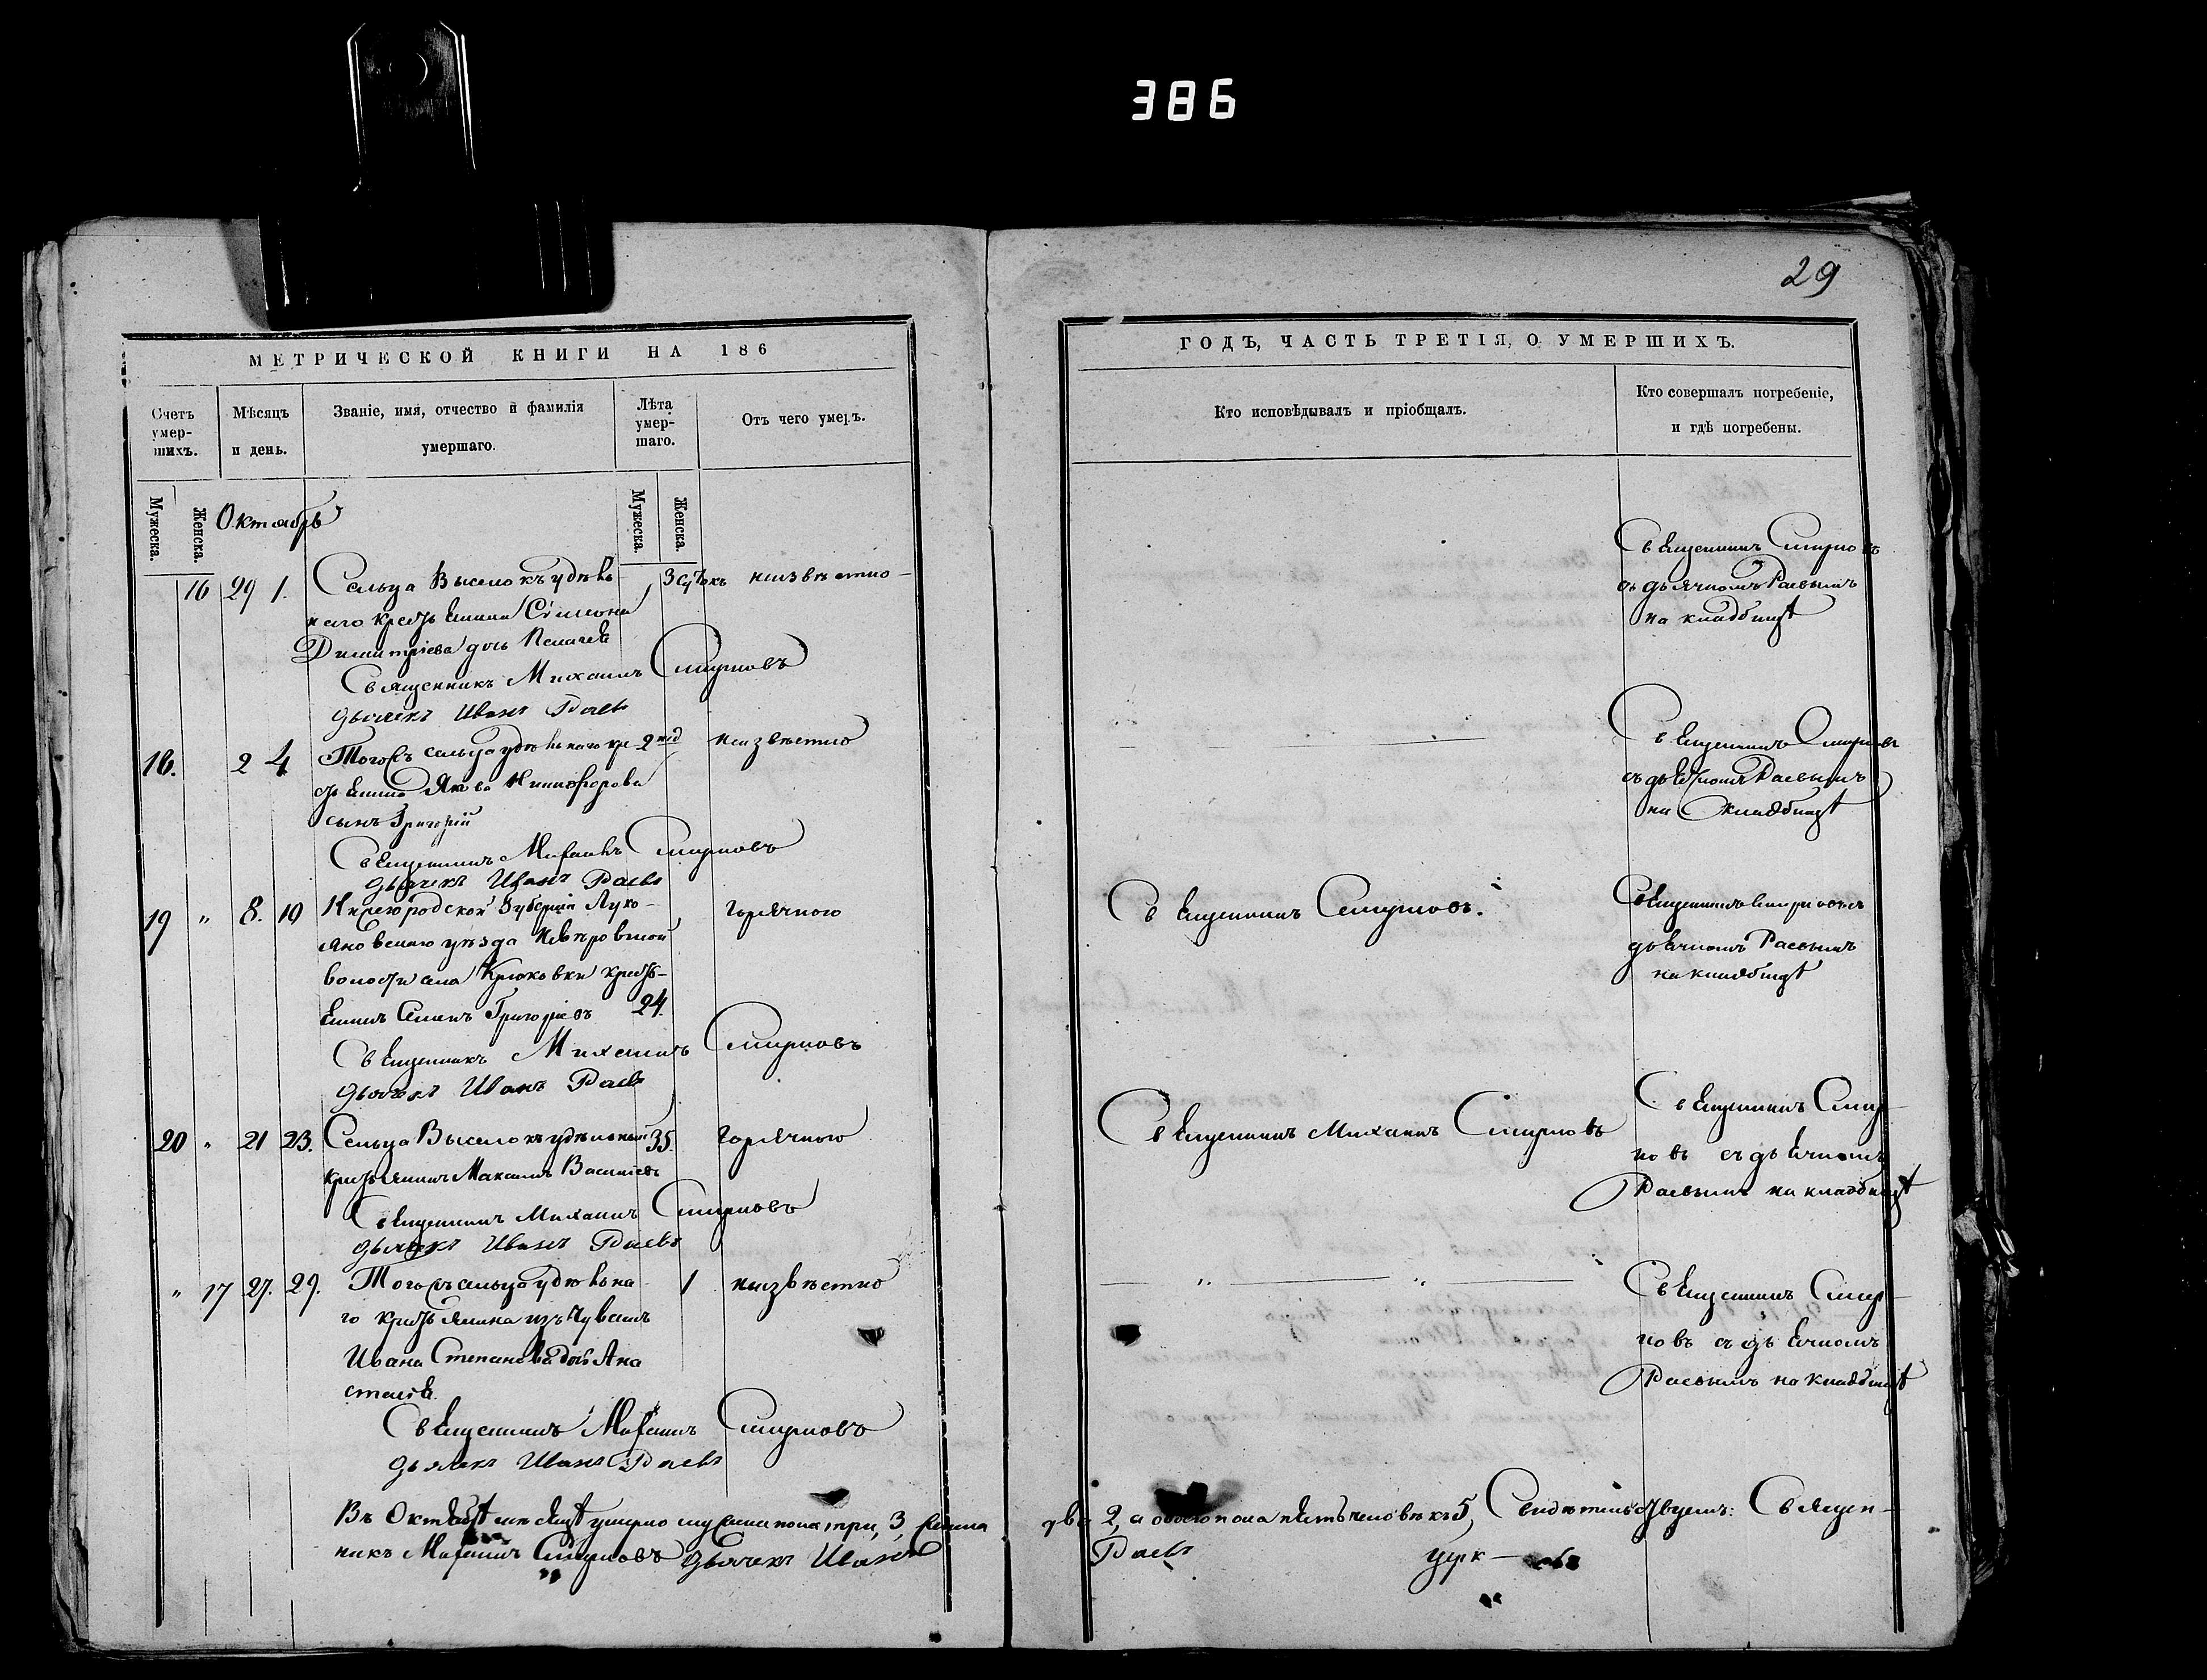 386
29
МЕТРИЧЕСКОЙ КНИГИ НА 186
Счетъ умер-шихъ.
Мѣсяцъ и день.
Званіе, имя, отчество и фамилія умершаго.
Лѣта умер-шаго.
Отъ чего умеръ.
Мужеска.
Женска.
Мужеска.
Женска.
Октябрь
16 29 1. Сельца Выселокъ удѣль 3 сутокъ неизвѣстно
наго крестьянина Симеона
Димитріева дочь Пелагея
Священникъ Михаилъ Смирновъ
дьячекъ Иванъ Раевъ
18. 2 4 Тогожъ сельца удѣльнаго кре 2 нед неизвѣстно
стьянина Якова Никифорова
сынъ Григорій
Священникъ Михаилъ Смирновъ
дьячекъ Иванъ Раевъ
19 " 8. 10 Нижегородской Губерніи Луко- горячкою
яновскаго уѣзда
волости села Крюковки кресть-
янинъ Семенъ Григорьевъ 24.
Священникъ Михаилъ Смирновъ
дьячекъ Иванъ Раевъ
20 " 21 23. Сельца Выселокъ удѣльный 35. горячкою
крестьянинъ Максимъ Васильевъ
Священникъ Михаилъ Смирновъ
дьячекъ Иванъ Раевъ
" 17 27. 29. Тогожъ сельца удѣльна 1 неизвѣстно
го крестьянина изъ Чувашъ
Ивана Степанова дочь Ана
стасія.
Священникъ Михаилъ Смирновъ
дьячекъ Иванъ Раевъ
Въ Октябрѣ мѣсяцѣ умерло мужеска пола три, 3, женска
никъ Михаилъ Смирновъ дьячекъ Иванъ
ГОДЪ, ЧАСТЬ ТРЕТІЯ, О УМЕРШИХЪ.
Кто исповѣдывалъ и пріобщалъ.
Кто совершалъ погребеніе, и гдѣ погребены.
Священникъ Смирновъ
съ дьячкомъ Раевымъ
на кладбищѣ
Священникъ Смирновъ
съ дьячкомъ Раевымъ
на кладбищѣ
Священникъ Смирновъ.
Священникъ Смирновъ съ
дьячкомъ Раевымъ
на кладбищѣ
Священникъ Михаилъ Смирновъ
Священникъ Смир
новъ съ дьячкомъ
Раевымъ на кладбищѣ
" "
Священникъ Смир-
новъ съ дьячкомъ
Раевымъ на кладбищѣ
два 2, а обоего пола пять человѣкъ 5, Свидѣтельствуемъ: Священ-
Раевъ